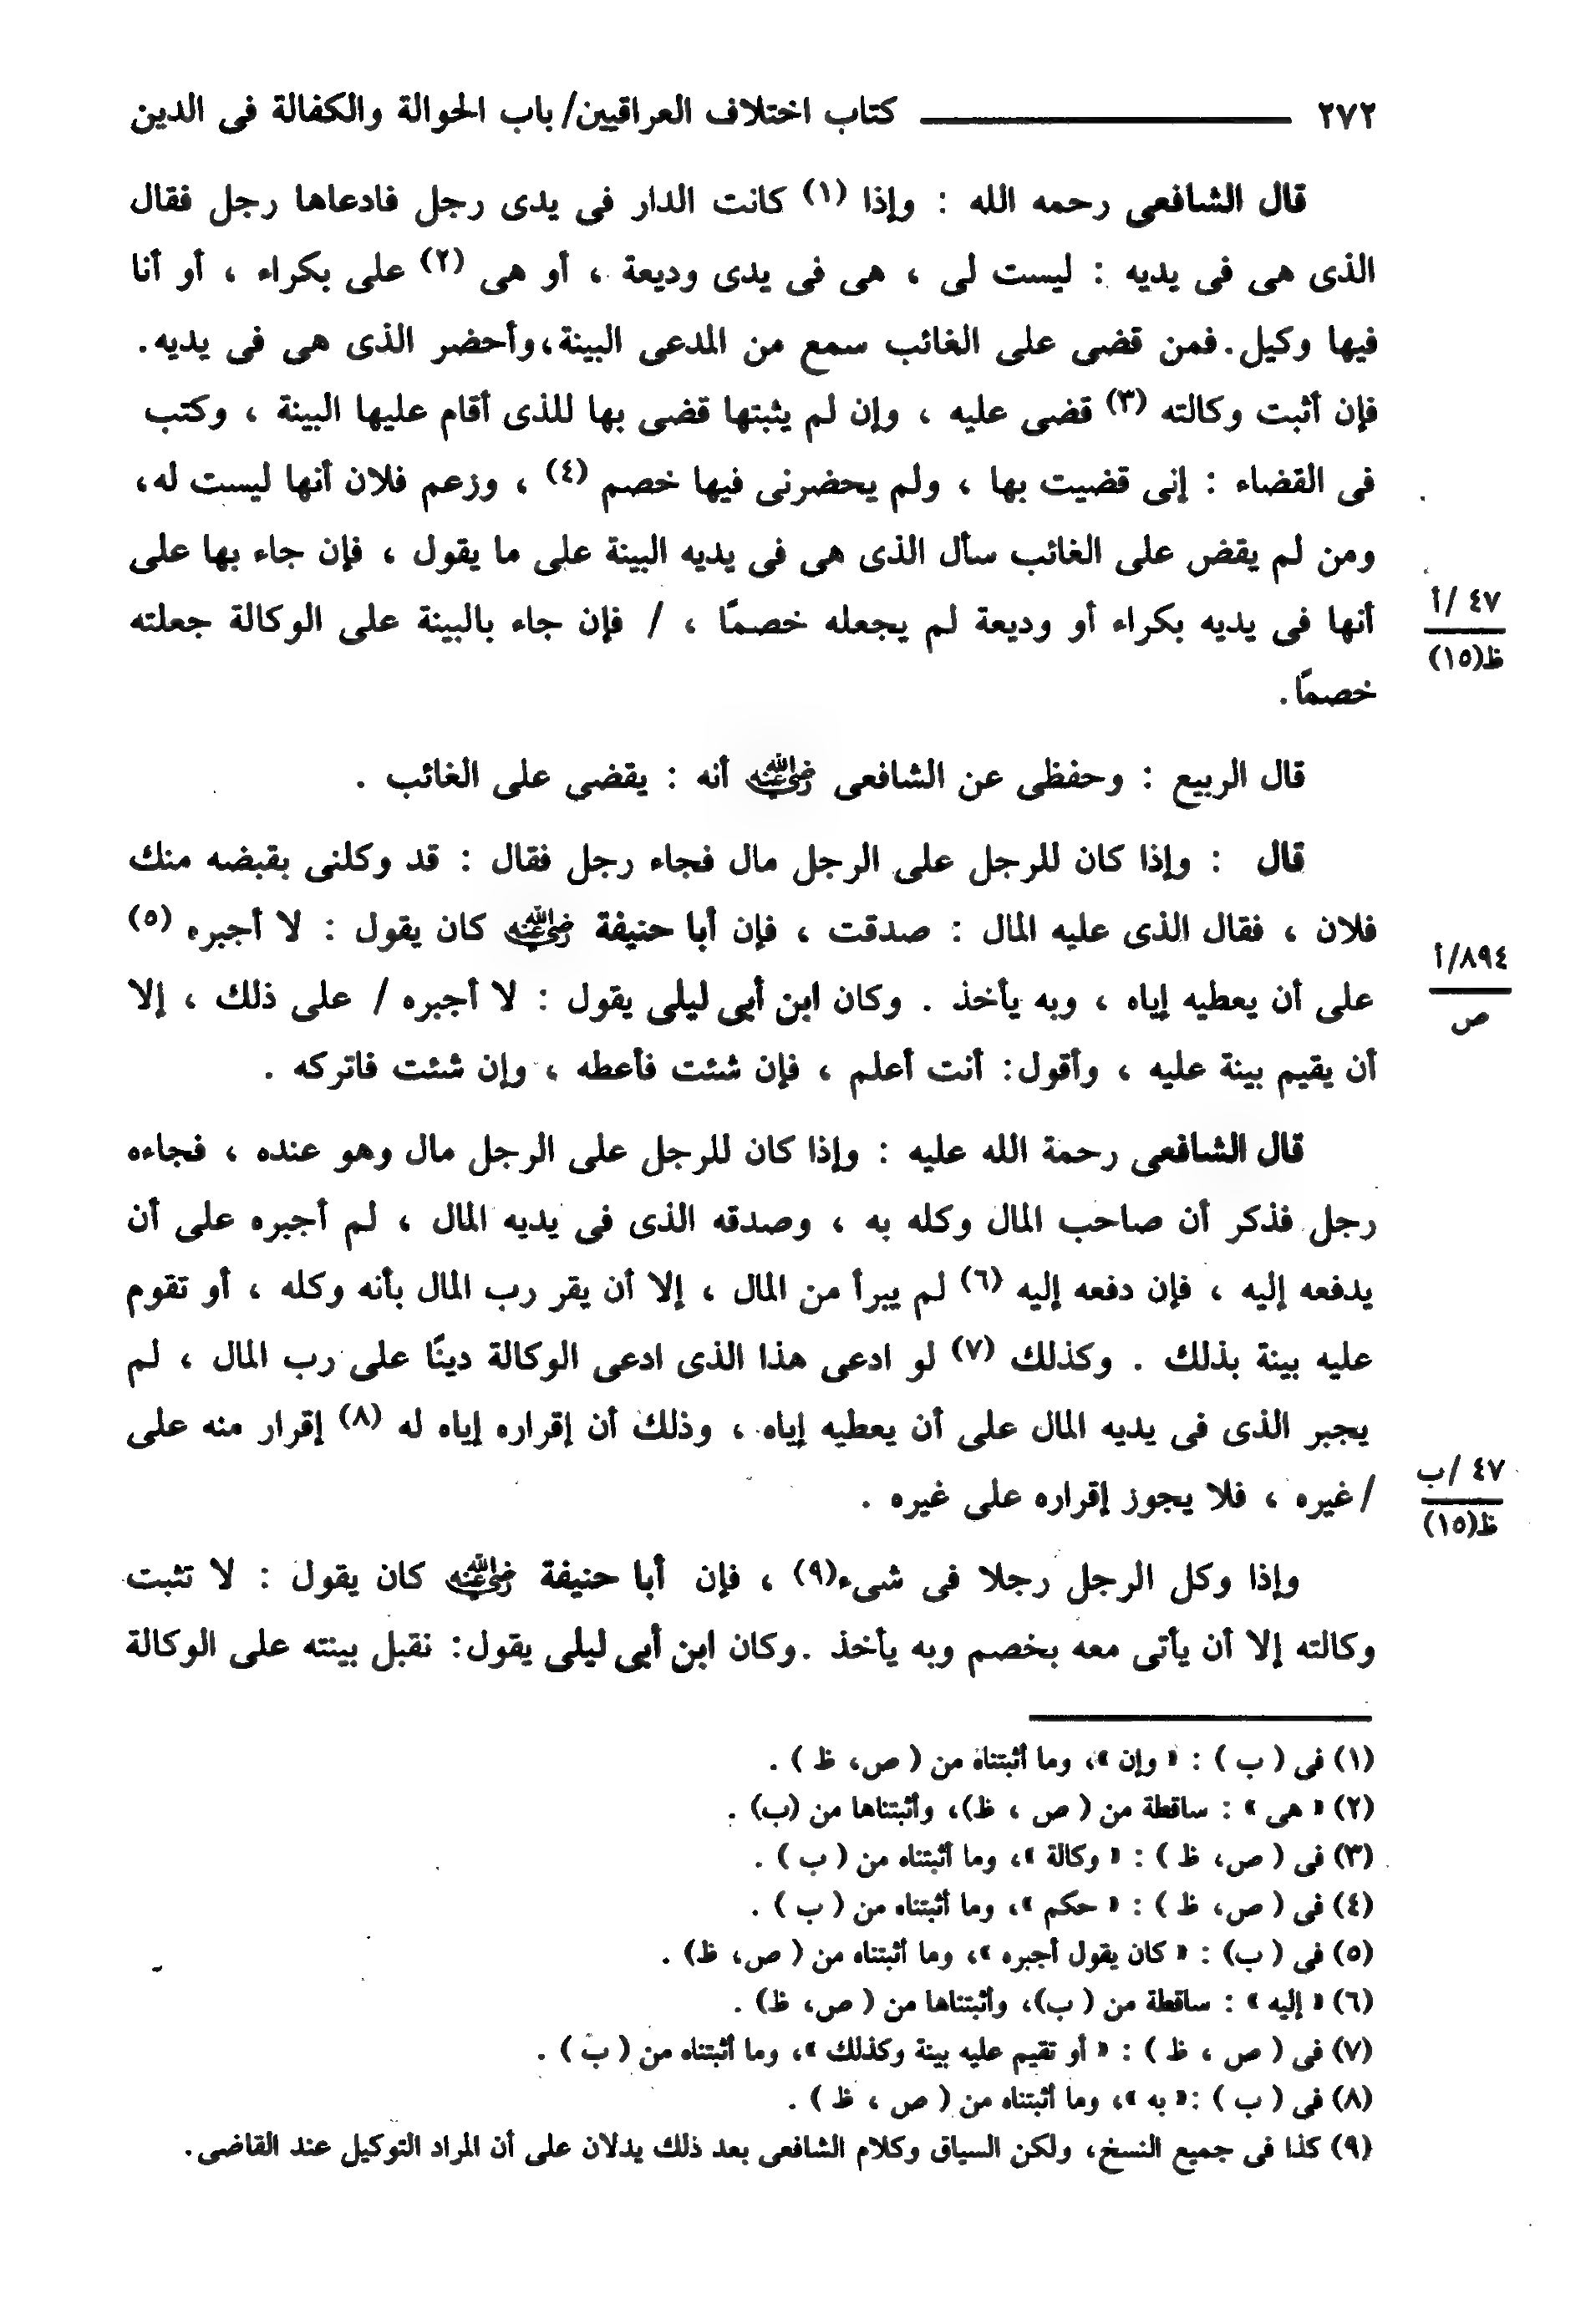 ٢٧٢ كتاب اختلاف العراقيين/ باب الحوالة والكفالة فى الدين
قال الشافعى رحمه الله : وإذا (١) كانت الدار فى يدى رجل فادعاها رجل فقال
الذى هى فى يديه : ليست لى ، هى فى يدى وديعة ، أو هى (٢) على بكراء ، أو أنا
فيها وكيل. فمن قضى على الغائب سمع من المدعى البينة،وأحضر الذى هى فى يديه.
فإن أثبت وكالته (٣) قضى عليه ، وإن لم يثبتها قضى بها للذى أقام عليها البينة ، وكتب
فى القضاء : إنى قضيت بها ، ولم يحضرنى فيها خصم (٤) ، وزعم فلان أنها ليست له،
ومن لم يقض على الغائب سأل الذى هى فى يديه البينة على ما يقول ، فإن جاء بها على
أنها فى يديه بكراء أو وديعة لم يجعله خصمًا ، / فإن جاء بالبينة على الوكالة جعلته
٤٧ /أ
ظ(١٥)
خصمًا.
قال الربيع : وحفظى عن الشافعى رضي الله عنه أنه : يقضى على الغائب .
قال : وإذا كان للرجل على الرجل مال فجاء رجل فقال : قد وكلنى بقبضه منك
فلان ، فقال الذى عليه المال : صدقت ، فإن أبا حنيفة رضي الله عنه كان يقول : لا أجبره (٥)
٨٩٤/أ
ص
على أن يعطيه إياه ، وبه يأخذ . وكان ابن أبى ليلى يقول : لا أجبره / على ذلك ، إلا
أن يقيم بينة عليه ، وأقول: أنت أعلم ، فإن شئت فأعطه ، وإن شئت فاتركه .
قال الشافعى رحمة الله عليه : وإذا كان للرجل على الرجل مال وهو عنده ، فجاءه
رجل فذكر أن صاحب المال وكله به ، وصدقه الذى فى يديه المال ، لم أجبره على أن
يدفعه إليه ، فإن دفعه إليه (٦) لم يبرأ من المال ، إلا أن يقر رب المال بأنه وكله ، أو تقوم
عليه بينة بذلك . وكذلك (٧) لو ادعى هذا الذى ادعى الوكالة دينًا على رب المال ، لم
يجبر الذى فى يديه المال على أن يعطيه إياه ، وذلك أن إقراره إياه له (٨) إقرار منه على
٤٧ /ب
ظ(١٥)
/ غيره ، فلا يجوز إقراره على غيره .
وإذا وكل الرجل رجلا فى شىء(٩) ، فإن أبا حنيفة رضي الله عنه كان يقول : لا تثبت
وكالته إلا أن يأتى معه بخصم وبه يأخذ .وكان ابن أبى ليلى يقول: نقبل بينته على الوكالة
(١) فى ( ب ) : « وإن »، وما أثبتناه من ( ص، ظ ) .
(٢) « هى » : ساقطة من ( ص ، ظ)، وأثبتناها من (ب) .
(٣) فى ( ص، ظ ) : « وكالة »، وما أثبتناه من ( ب ) .
(٤) فى ( ص، ظ ) : « حكم »، وما أثبتناه من ( ب ) .
(٥) فى ( ب) : « كان يقول أجبره »، وما أثبتناه من ( ص، ظ) .
(٦) « إليه » : ساقطة من ( ب)، وأثبتناها من ( ص، ظ) .
(٧) فى ( ص ، ظ ) : « أو تقيم عليه بينة وكذلك »، وما أثبتناه من ( ب ) .
(٨) فى ( ب ) :« به »، وما أثبتناه من ( ص ، ظ ) .
(٩) كذا فى جميع النسخ، ولكن السياق وكلام الشافعى بعد ذلك يدلان على أن المراد التوكيل عند القاضى.